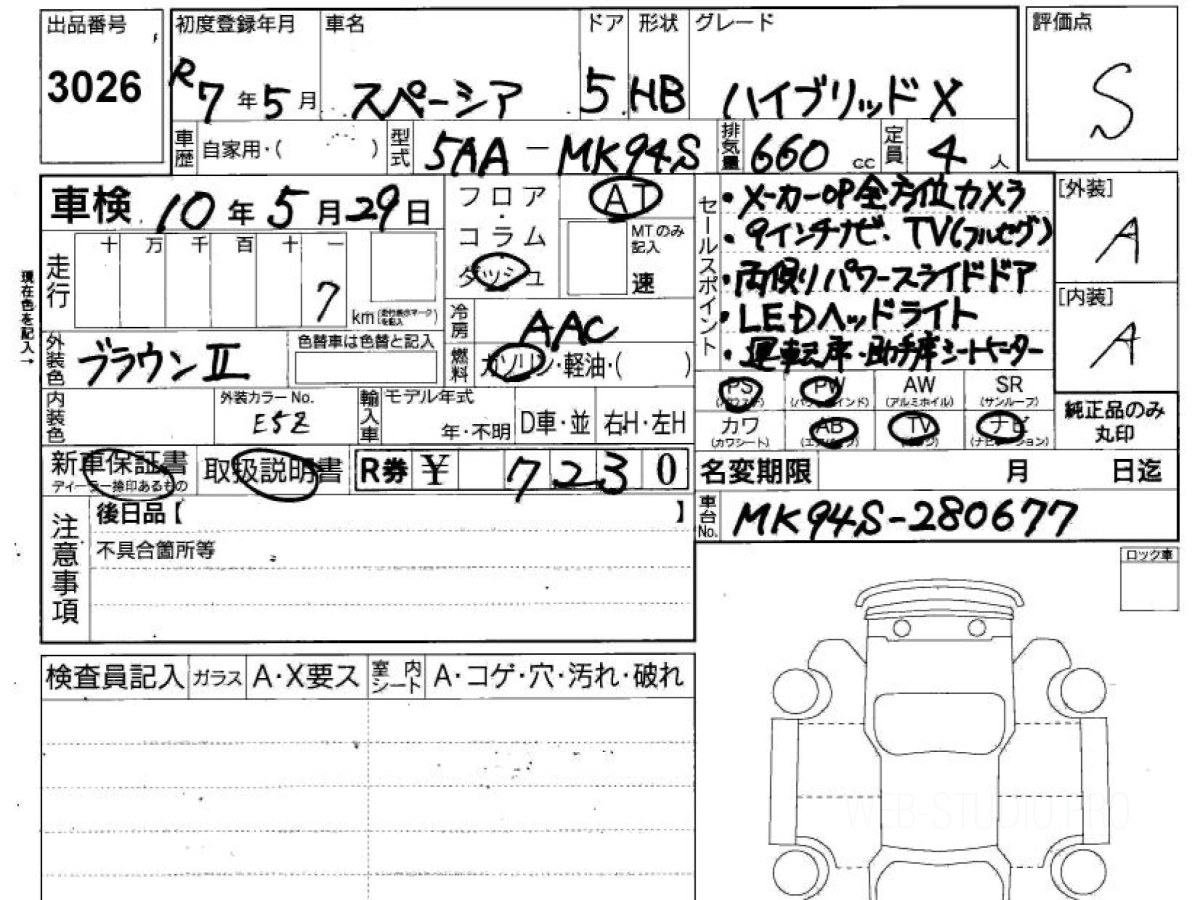 出品番号 初度登録年月 車名 ドア 形状 グレード 評価点
3026 R7年5月 スペーシア 5 HB ハイブリッドX S
車歴 自家用・( ) 型式 5AA-MK94S 排気量 660cc 定員 4人
車検 10年5月29日 フロア・コラム ダッシュ AT MTのみ記入 速
セールスポイント
・メーカーOP全方位カメラ
・9インチナビ・TV(フルセグ)
・両側りパワースライドドア
・LEDヘッドライト
・運転席・助手席シートヒーター
[外装] A
[内装] A
現在色を記入→
走行 十 万 千 百 十 一
7 km(走行表示マークを記入)
冷房 AAC
外装色 ブラウンⅡ 色替車は色替と記入 燃料 ガソリン・軽油・( )
PS PW AW(アルミホイル) SR(サンルーフ)
カワ(カワシート) AB TV ナビ(ナビゲーション)
純正品のみ丸印
内装色 外装カラーNo. E5Z 輸入車 モデル年式 年・不明 D車・並 右H・左H
新車保証書 ディーラー捺印あるもの 取扱説明書 R券 ¥ 7230 名変期限 月 日迄
注意事項 後日品【 】 車台No. MK94S-280677
不具合箇所等
ロック車
検査員記入 ガラス A・X要ス 室内シート A・コゲ・穴・汚れ・破れ
WEB-STUDIO.PRO